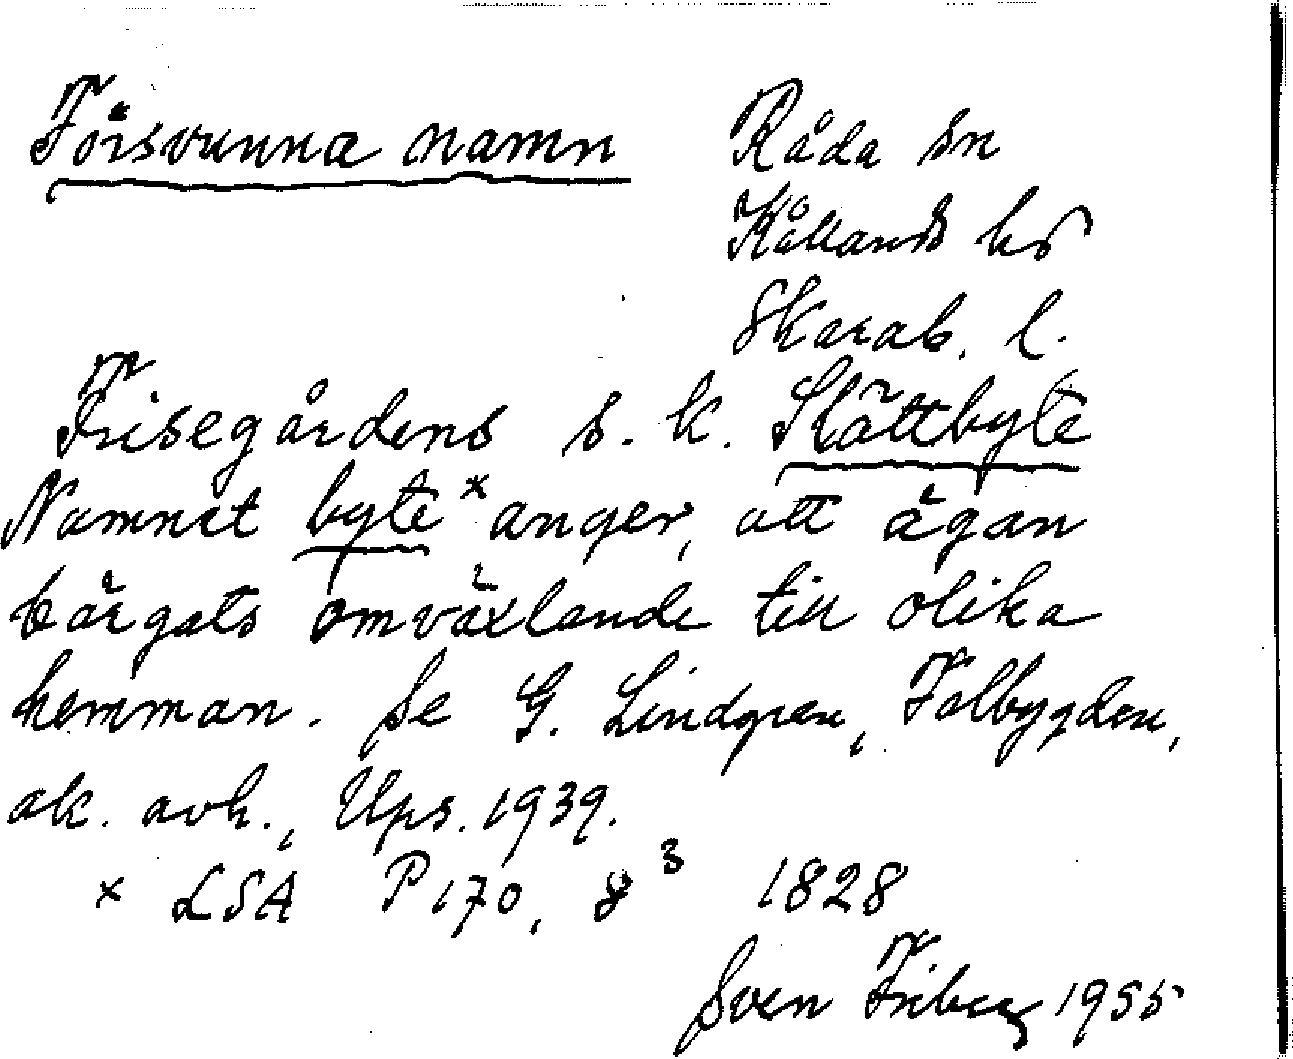 Försvunna namn
Råda sn
Kållands hd
Skarab. l.
Frisegårdens s. k. Slättbyte
Namnet byte x anger, att ägan
bärgats omväxlande till olika
hemman. Se G. Lindgren, Falbygden,
ak. avh., Ups. 1939.
x LSA P 170, 8³ 1828
Sven Friberg 1955